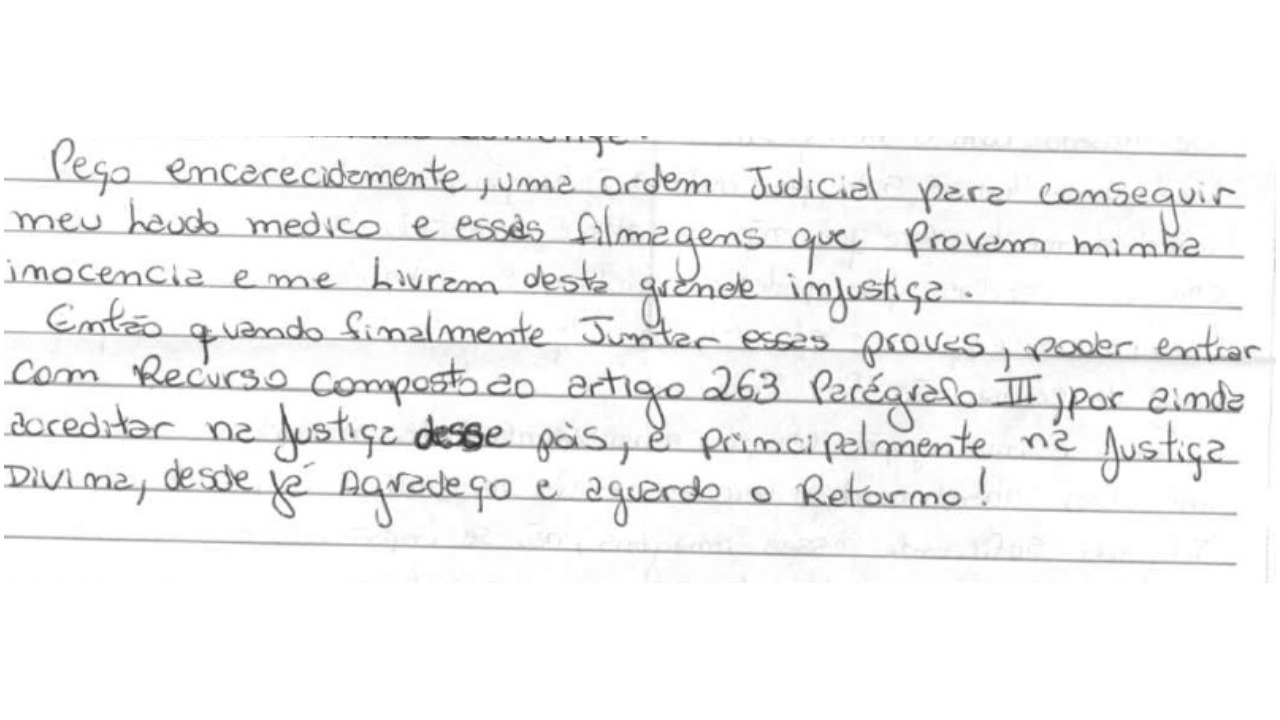 Peço encarecidamente, uma ordem Judicial para conseguir
meu haudo medico e essas filmagens que Provam minha
inocencia e me Livram desta grande injustiça.
Então quando finalmente Juntar essas provas, poder entrar
com Recurso composto ao artigo 263 Parágrafo III, por ainda
acreditar na Justiça desse país, e principalmente na Justiça
Divina, desde já Agradeço e aguardo o Retorno!